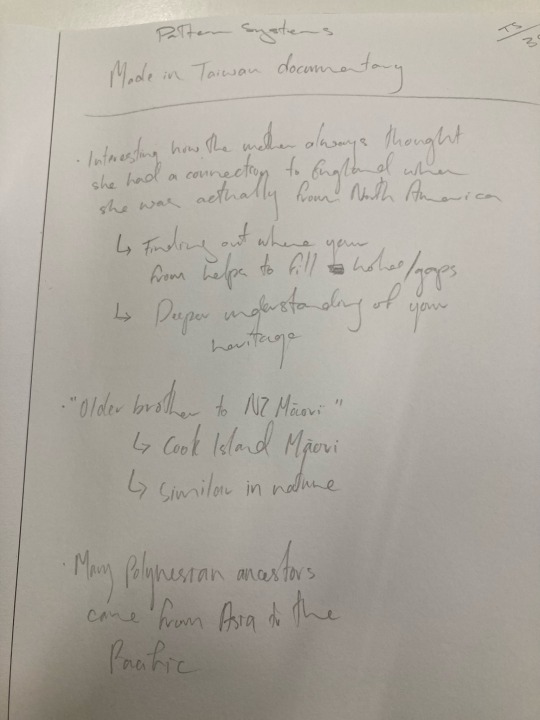 Pattern Systems
Made in Taiwan documentary
· Interesting how the mother always thought
she had a connection to England when
she was actually from North America
↳ Finding out where your
from helps to fill holes/gaps
↳ Deeper understanding of your
heritage
· "Older brother to NZ Māori"
↳ Cook Island Māori
↳ Similar in nature
· Many Polynesian ancestors
came from Asia to the
Pacific